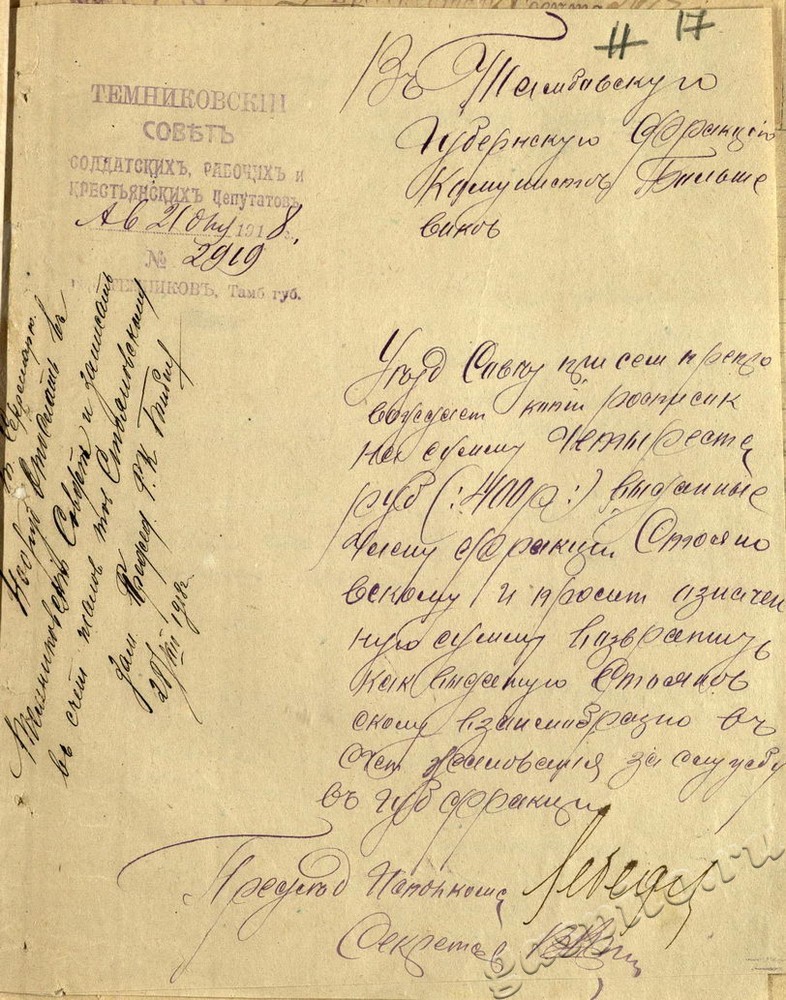 11 17
ТЕМНИКОВСКІЙ
СОВѢТЪ
СОЛДАТСКИХЪ, РАБОЧИХЪ и
КРЕСТЬЯНСКИХЪ Депутатовъ
21 1918
№ 2919
ТЕМНИКОВЪ, Тамб губ.
Въ Тамбовскую
Губернскую Фракцію
Комунистов Больше
виков
Уезд Совет при сем препро
вождает копіи росписик
на сумму Четыреста
руб (:400р:) выданные
Члену фракции Стояно
вскому и просит означен
ную сумму возвратить
как выдатую Стоянов
скому взаимобразно въ
счет жалования за службу
въ губ фракции
Председ
Секретарь
Секретарю.
Прошу Отослать въ
Темниковский Совет и записать
въ счет жалов тов Стояновскому
Зам Председ Ф.К.
28/VIII 1918г